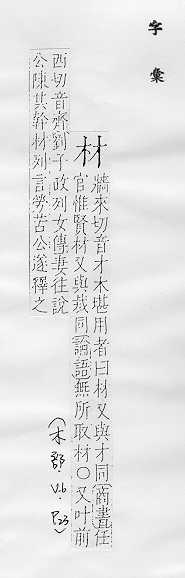 字彙
材
牆來切音才木堪用者曰材又與才同(商書)任
官惟賢材又與哉同(論語)無所取材○又叶前
西切音齊劉子政列女傳妻往說
公陳其幹材列言勞苦公遂釋之
(木部.V.6.P.23)